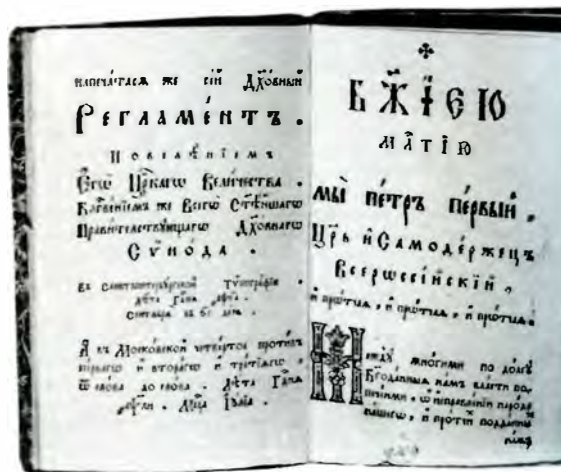 напеча́тасѧ же се́й Дх҃о́вный
Регла́ментъ.
Повелѣ́нїемъ
Єгѡ̀ Цр҃кагѡ Вели́чества.
Бл҃гослове́нїемъ же Всегѡ̀ Ст҃ѣ́йшагѡ
Прави́тельствующагѡ Дх҃о́внагѡ
Сѷно́да.
въ Санктпетербу́ргской Тѷпогра́фїи
лѣ́та
въ день
А въ Моско́вской четве́ртое про́тивъ
пе́рвагѡ и втора́гѡ и тре́тїагѡ
ѿ сло́ва до сло́ва. лѣ́та
Їꙋ́лїа.
Б҃жїєю
мл҃тїю
мы̀ пе́тръ пе́рвый,
Цр҃ь и҆ Самоде́ржецъ
Всерѡссі́йскїй,
и҆ прѡ́тчаѧ, и҆ прѡ́тчаѧ, и҆ прѡ́тчаѧ.
мно́гими по до́лгꙋ
Бг҃ода́нныѧ на́мъ вла́сти по
пече́ньми, ѡ и҆справле́нїи наро́да
на́шегѡ, и҆ про́тчїхъ подда́нныхъ
на́мъ